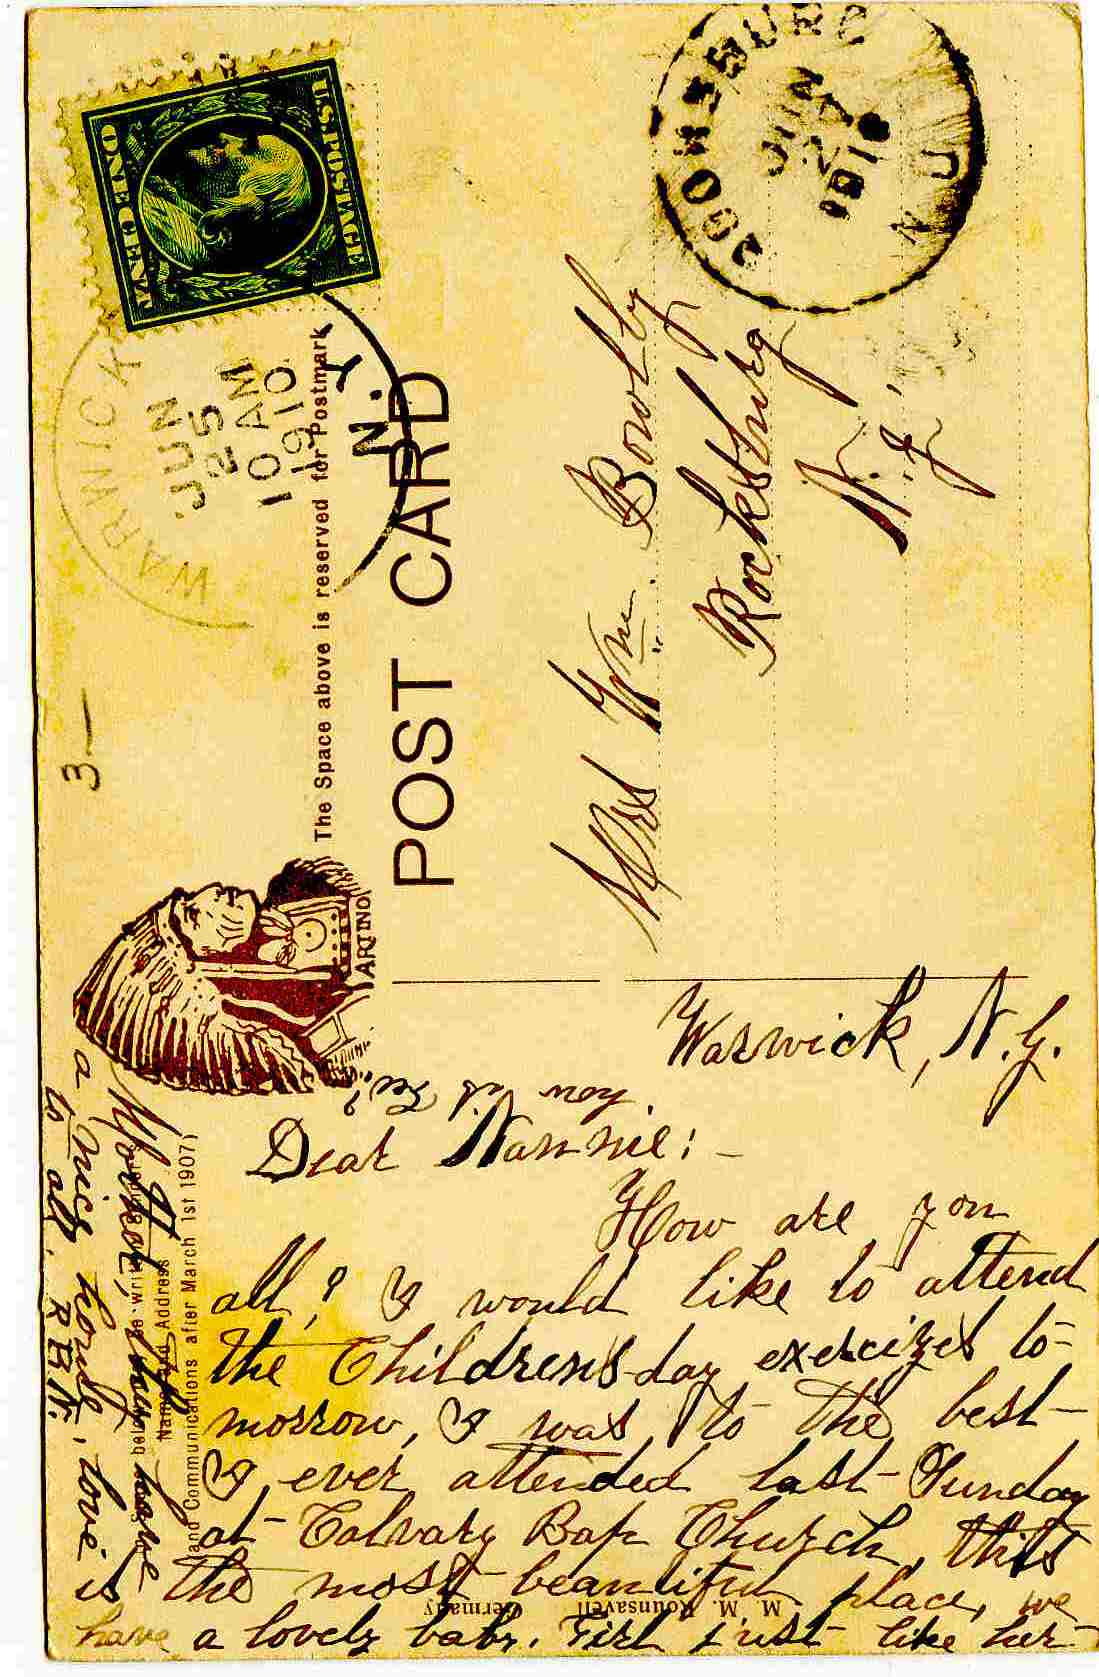 U.S. POSTAGE
ONE CENT
WARWICK
N.Y.
JUN
25
10 AM
1910
BLOOMSBURG
N.J.
JUN
27
1910
3—
The Space above is reserved for Postmark
POST CARD
ARTINO
Mrs Wm. Bowlby
Rocksburg
N.J.
Warwick, N.Y.
Dear Nannie: –
How are you
all? I would like to attend
the Childrens-day exercizes to=
morrow, I was to the best
I ever attended last Sunday
at Calvary Bap Church, this
is the most beautiful place, we
have a lovely baby. Girl just like her
Mother, they have
a nice home, love
to all. R.B.N.
Name and Address
and Communications after March 1st 1907)
M. M. Rounsavell
Germany